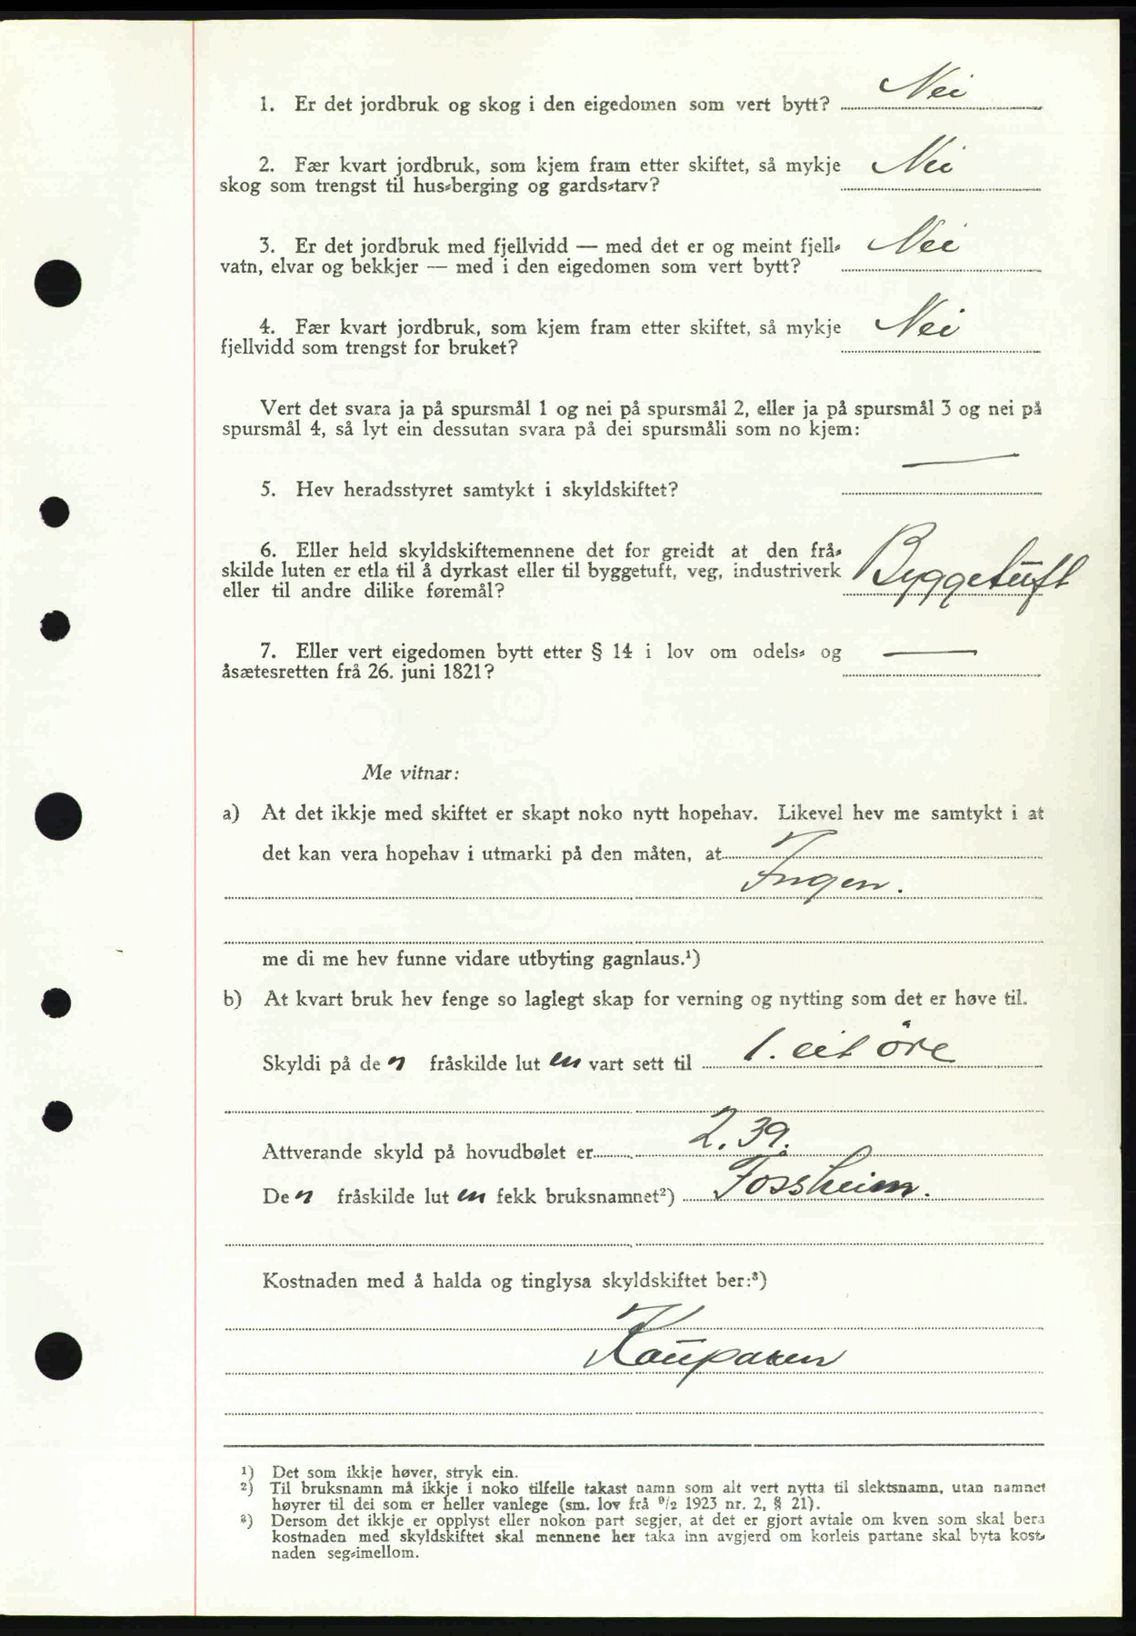 1. Er det jordbruk og skog i den eigedomen som vert bytt? Nei
2. Fær kvart jordbruk, som kjem fram etter skiftet, så mykje
skog som trengst til hus⸗berging og gards⸗tarv? Nei
3. Er det jordbruk med fjellvidd — med det er og meint fjell⸗
vatn, elvar og bekkjer — med i den eigedomen som vert bytt? Nei
4. Fær kvart jordbruk, som kjem fram etter skiftet, så mykje
fjellvidd som trengst for bruket? Nei
Vert det svara ja på spursmål 1 og nei på spursmål 2, eller ja på spursmål 3 og nei på
spursmål 4, så lyt ein dessutan svara på dei spursmåli som no kjem:
5. Hev heradsstyret samtykt i skyldskiftet? —
6. Eller held skyldskiftemennene det for greidt at den frå⸗
skilde luten er etla til å dyrkast eller til byggetuft, veg, industriverk
eller til andre dilike føremål? Byggetuft
7. Eller vert eigedomen bytt etter § 14 i lov om odels⸗ og
åsætesretten frå 26. juni 1821? —
Me vitnar:
a) At det ikkje med skiftet er skapt noko nytt hopehav. Likevel hev me samtykt i at
det kan vera hopehav i utmarki på den måten, at
Ingen.
me di me hev funne vidare utbyting gagnlaus.¹)
b) At kvart bruk hev fenge so laglegt skap for verning og nytting som det er høve til.
Skyldi på den fråskilde luten vart sett til 1. eit öre
Attverande skyld på hovudbølet er 2.39.
Den fråskilde luten fekk bruksnamnet²) Fossheim.
Kostnaden med å halda og tinglysa skyldskiftet ber:³)
Kauparen
¹) Det som ikkje høver, stryk ein.
²) Til bruksnamn må ikkje i noko tilfelle takast namn som alt vert nytta til slektsnamn, utan namnet
høyrer til dei som er heller vanlege (sm. lov frå 9/2 1923 nr. 2, § 21).
³) Dersom det ikkje er opplyst eller nokon part segjer, at det er gjort avtale om kven som skal bera
kostnaden med skyldskiftet skal mennene her taka inn avgjerd om korleis partane skal byta kost⸗
naden seg⸗imellom.